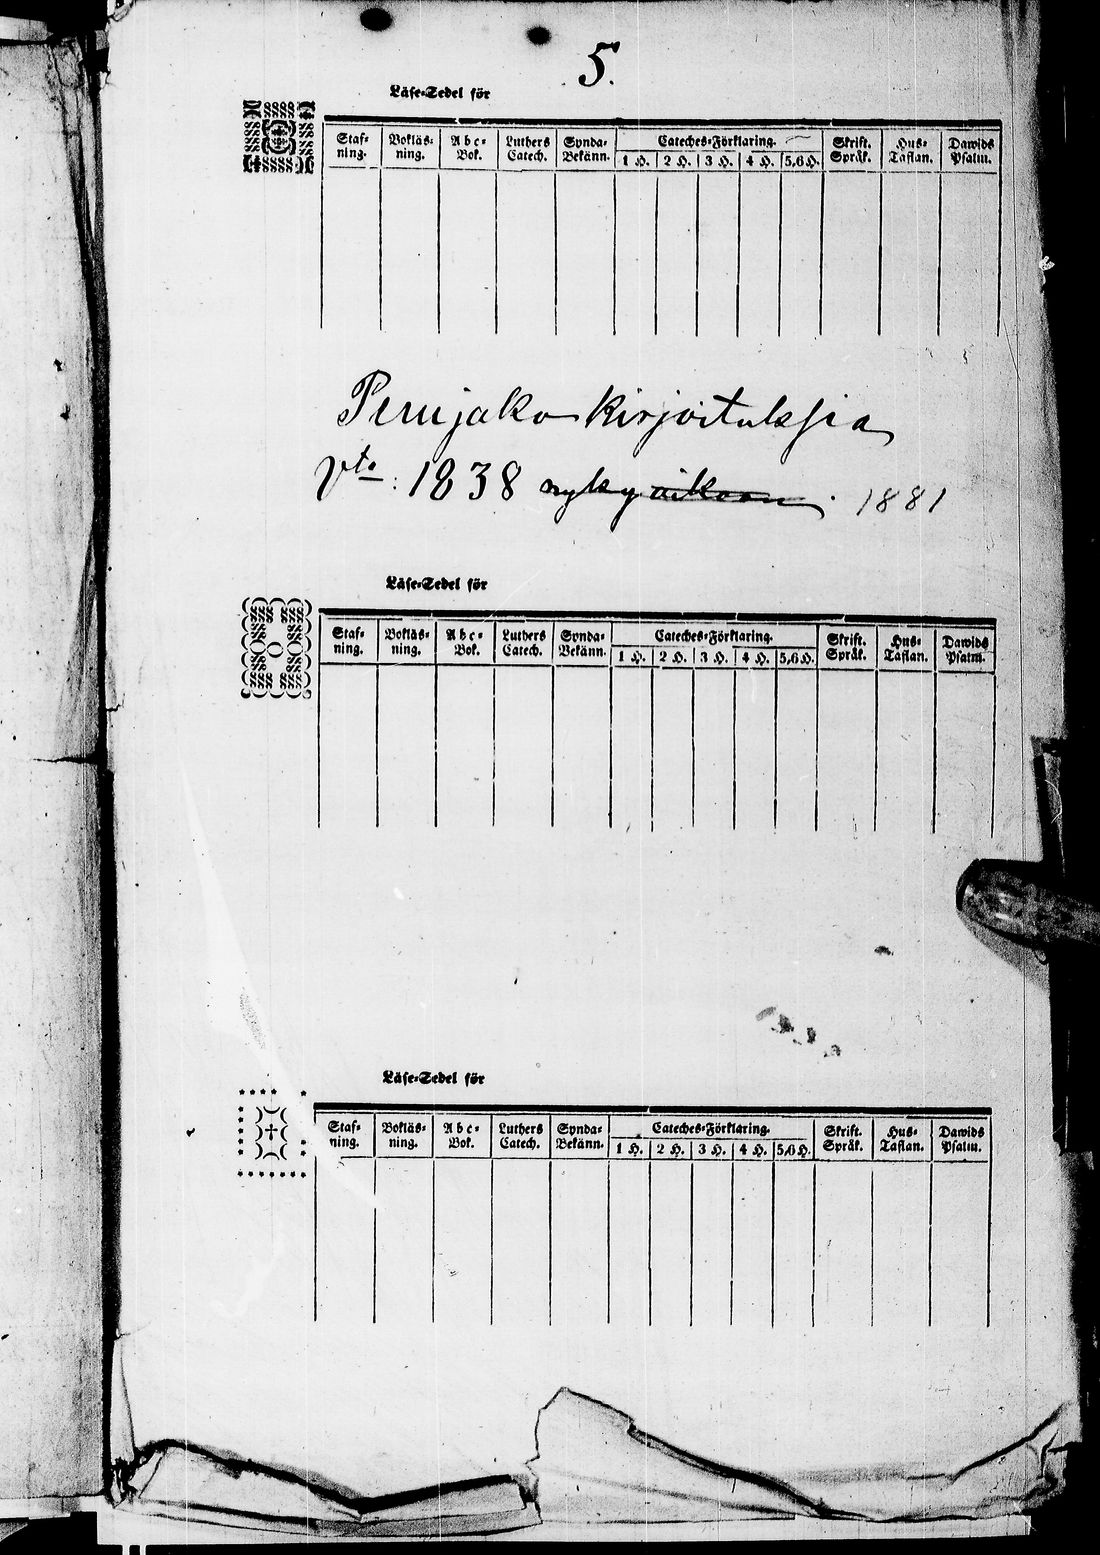 5.
Läse-Sedel för
Staf-ning. Bokläs-ning. Abc-Bok. Luthers Catech. Synda-Bekänn. Cateches-Förklaring. 1 H. 2 H. 3 H. 4 H. 5,6 H. Skrift. Språk. Hus-Taflan. Dawids Psalm.
Perujako kirjoituksia
Vta: 1838 nyky aikaan. 1881
Läse-Sedel för
Staf-ning. Bokläs-ning. Abc-Bok. Luthers Catech. Synda-Bekänn. Cateches-Förklaring. 1 H. 2 H. 3 H. 4 H. 5,6 H. Skrift. Språk. Hus-Taflan. Dawids Psalm.
Läse-Sedel för
Staf-ning. Bokläs-ning. Abc-Bok. Luthers Catech. Synda-Bekänn. Cateches-Förklaring. 1 H. 2 H. 3 H. 4 H. 5,6 H. Skrift. Språk. Hus-Taflan. Dawids Psalm.